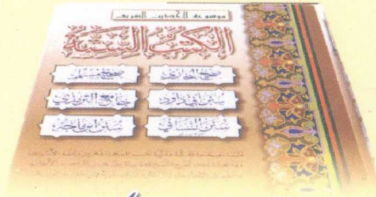 موسوعة الحديث الشريف
الكتب الستة
صحيح البخاري صحيح مسلم
سنن أبي داود جامع الترمذي
سنن النسائي سنن ابن ماجه